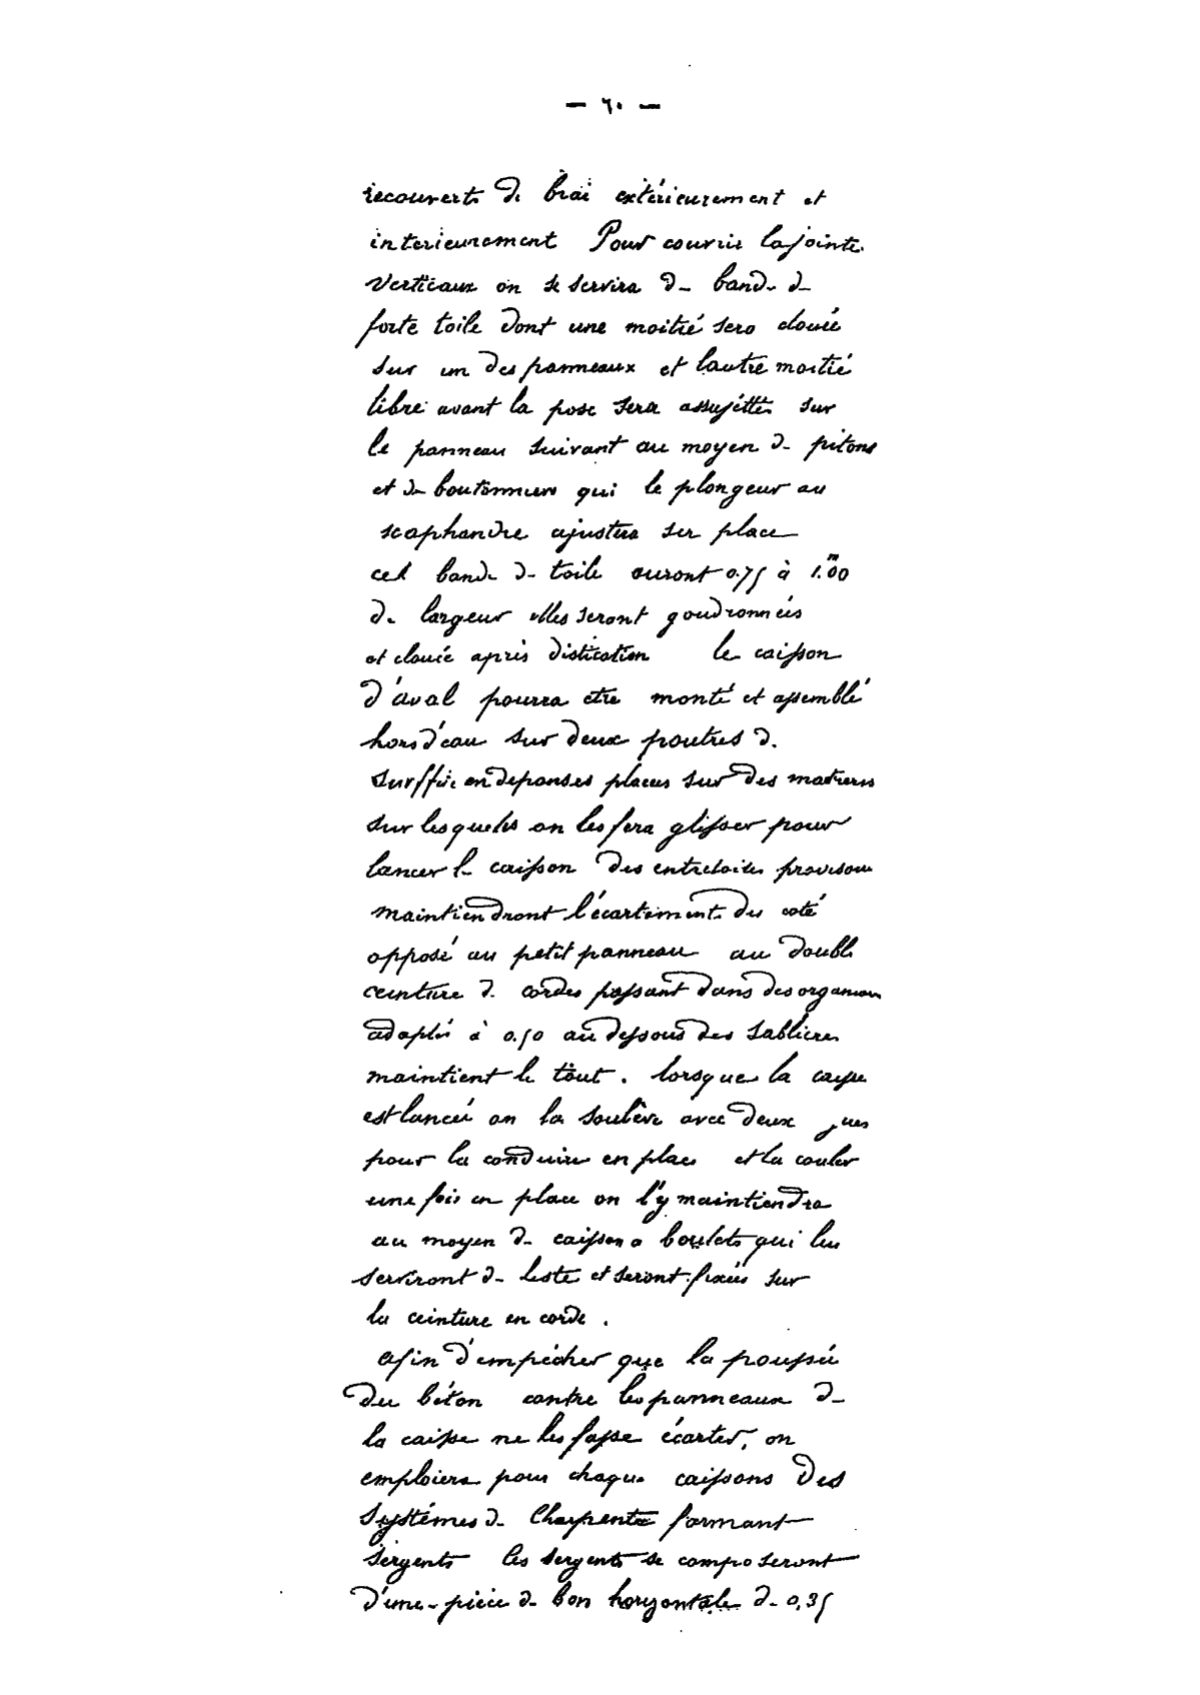 — ٦٠ —
recouverts de brai extérieurement et
interieurement Pour couvrir les joints
verticaux on se servira de bande de
forte toile dont une moitié sera clouée
sur un des panneaux et lautre moitié
libre avant la pose sera assujéttie sur
le panneau suivant au moyen de pitons
et de boutonnieres qui le plongeur au
scaphandre ajustera sur place
ces bande de toile auront 0.75 à 1.00 m
de largeur elles seront goudronnées
et clouée après le caisson
d'aval pourra etre monté et assemblé
hors d'eau sur deux poutres de
placees sur des madriers
sur lesquels on les fera glisser pour
lancer le caisson des entretoises provisoire
maintiendront l'écartement du coté
opposé au petit panneau au double
ceinture de cordes passant dans des organeaux
adaptés à 0.50 au dessous des sablieres
maintient le tout . lorsque la caisse
est lancée on la soulève avec deux grues
pour la conduire en place et la couler
une fois en place on l'y maintiendra
au moyen de caisson a boulets qui leur
serviront de leste et seront fixées sur
la ceinture en corde .
afin d'empécher que la poussée
du béton contre les panneaux de
la caisse ne les fasse écarter, on
emploiera pour chaque caissons des
systémes de Charpente formant
sergents les sergents se composeront
d'une pièce de bon horizontale de 0,35